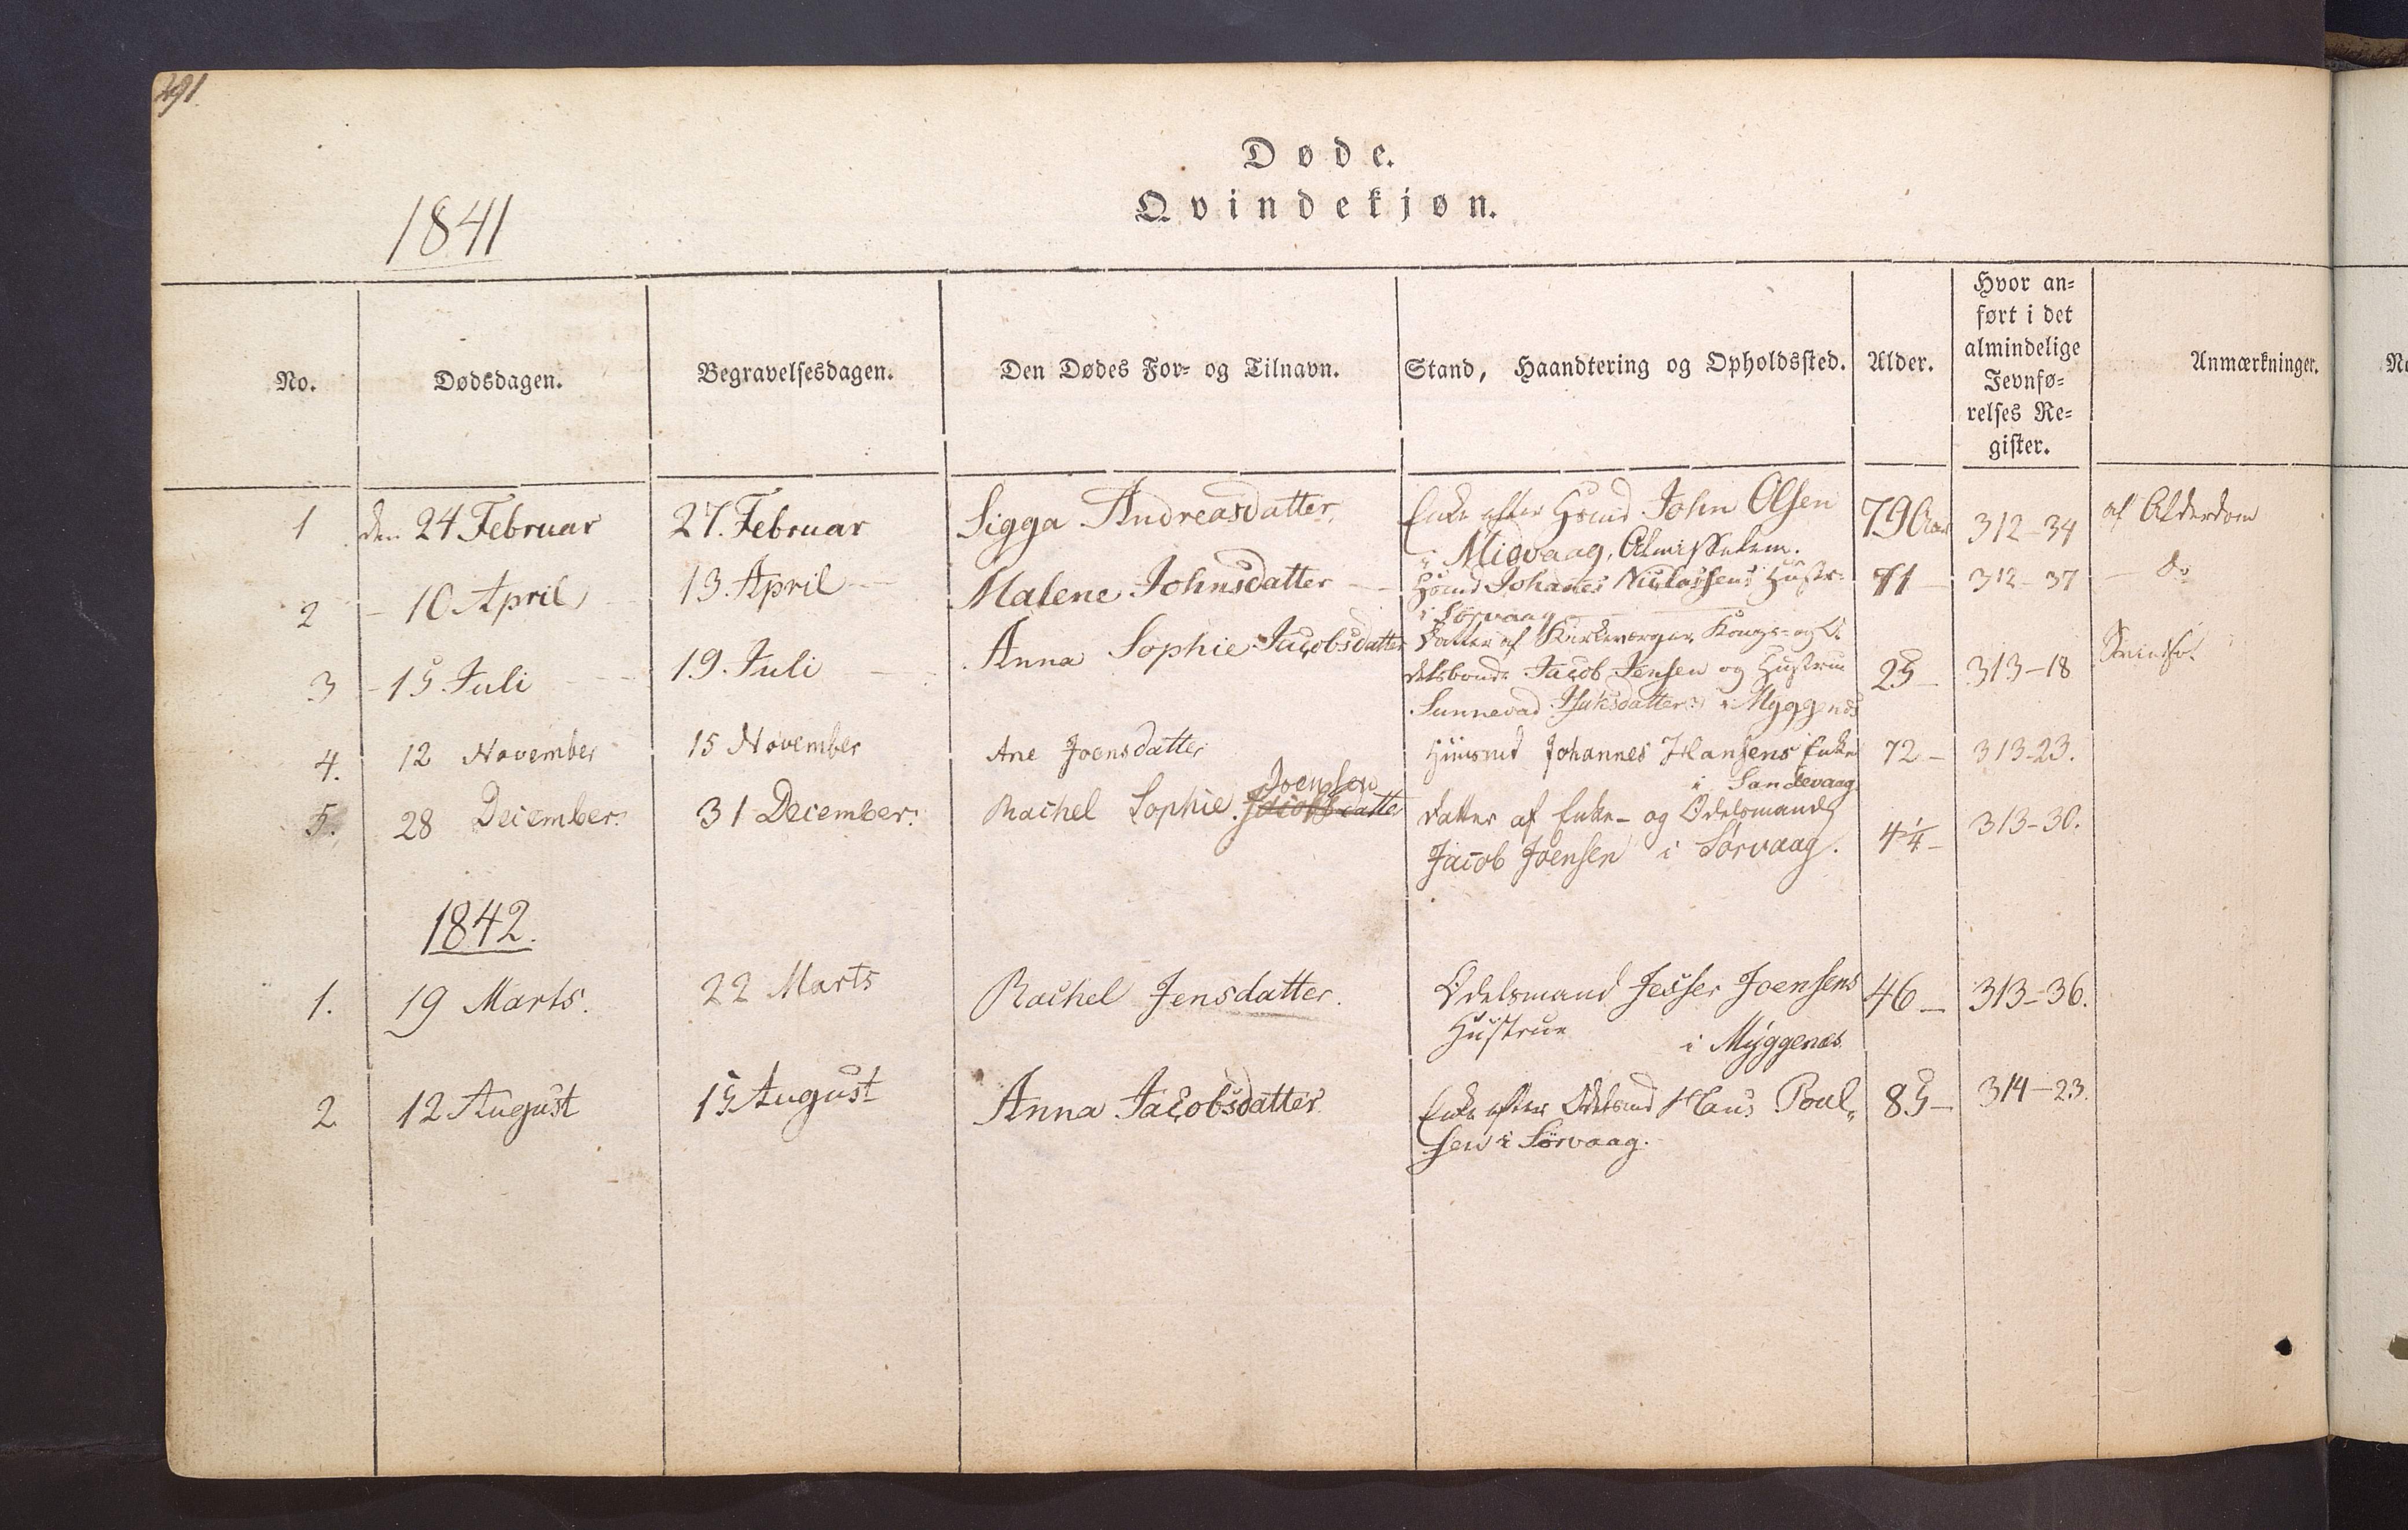 291.
Døde.
Qvindekjøn.
1841
No.
Dødsdagen.
Begravelsesdagen.
Den Dødes For- og Tilnavn.
Stand, Haandtering og Opholdssted.
Alder.
Hvor an=
ført i det
almindelige
Jevnfø=
relses Re=
gister.
Anmærkninger.
1 den 24 Februar 27. Februar Sigga Andreasdatter Enke efter Hsmd John Olsen 79 Aar 312-34 af Alderdom
i Midvaag, Almisselem.
2 - 10 April 13. April - Malene Johnsdatter - Hsmd Johanes Niclassens Hustr: 71 - 312-37 - do
i Sørvaag
3 - 15. Juli 19. Juli Anna Sophie Jacobsdatter Datter af Kirkeværger, Konge- og O- 25 - 313-18
delsbonde Jacob Jensen og Hustrue
Sunnevad i Myggenæs
4. 12 November 15 November Ane Joensdatter Huusmd Johannes Hansens Enke 72 - 313-23.
i Sandevaag
5. 28 December. 31 December. Rachel Sophie Jacobsdatter Joensen Datter af Enke- og Odelsmand 4 1/4 - 313-30.
Jacob Joensen i Sørvaag.
1842.
1. 19 Marts. 22 Marts Rachel Jensdatter. Odelsmand Joensens 46 - 313-36.
Hustrue i Myggenæs
2. 12 August 15 August Anna Jacobsdatter Enke efter Odelsmd Hans Poul„ 85 - 314-23.
sen i Sørvaag.